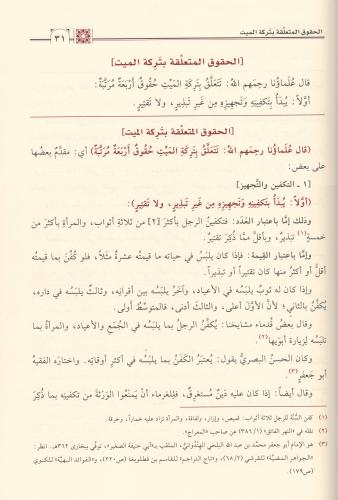 الحقوق المتعلّقة بتركة الميت
٣١
[الحقوق المتعلقة بتَرِكة الميت]
قال عُلماؤنا رحِمَهم اللهُ: تَتَعلَّقُ بِتَرِكَةِ المَيِّتِ حُقُوقٌ أَرْبَعَةٌ مُرَتَّبَةٌ:
أوَّلاً: يُبدَأُ بِتَكفِينِهِ وَتَجهِيزِهِ مِن غَيرِ تَبذِيرٍ، ولا تَقتِيرٍ.
[الحقوق المتعلقة بتركة الميت]
(قال عُلماؤنا رحمهم اللهُ: تَتَعلَّقُ بِتَرِكَةِ المَيِّتِ حُقُوقٌ أَرْبَعَةٌ مُرَتَّبَةٌ) أي: مقدَّمٌ بعضُها
على بعض:
[١ ـ التكفين والتَّجهيز]
(أوَّلاً: يُبدَأُ بِتَكفِينِهِ وَتَجهِيزِهِ مِن غَيرِ تَبذِيرٍ، ولا تَقتِيرٍ):
وذلك إمَّا باعتبار العَدَد: فتكفينُ الرجل بأكثرَ [٢] من ثلاثةِ أثواب، والمرأةِ بأكثرَ من
خمسةٍ(١) تبذيرٌ، وبأقلَّ ممَّا ذُكِرَ تقتيرٌ.
وإمَّا باعتبار القِيمة: فإذا كان يلبَسُ في حياته ما قيمتُه عشرةٌ مثلاً، فلو كُفِّنَ بما قيمتُه
أقلُّ أو أكثرُ منها كان تقتيراً أو تبذيراً.
وإذا كان له ثوبٌ يلبَسُه في الأعياد، وآخرُ يلبَسُه بين أقرانِه، وثالثٌ يلبَسُه في داره،
يُكفَّنُ بالثاني؛ لأنَّ الأوَّلَ أعلى، والثالثَ أدنى، فالمتوسِّطُ أَولى.
وقال بعضُ قُدماء مشايخنا: يُكفَّنُ الرجلُ بما يلبَسُه في الجُمَعِ والأعياد، والمرأةُ بما
تلبَسُه لِزيارة أبوَيها(٢).
وكان الحسنُ البصريُّ يقول: يُعتبَرُ الكَفَنُ بما يلبَسُه في أكثرِ أوقاتِه. واختارَه الفقيهُ
أبو جَعفر(٣).
وقال أيضاً: إذا كان عليه دَينٌ مُستغرِقٌ، فلِلغُرماءِ أنْ يَمنَعُوا الوَرَثةَ من تكفينِه بما ذُكِرَ
(١) كفن السُّنَّة للرجل ثلاثة أثواب: قميص، وإزار، ولفافة، والمرأة تزاد عليه خماراً، وخرقة.
(٢) نقله في «النهر الفائق» (٣٨٦/١) عن صاحب «المعراج».
(٣) هو الإمام أبو جعفر محمد بن عبد الله البلخي الهِنْدُواني، الملقب بـ«أبي حنيفة الصغير»، توفّي ببخارى ٣٦٢هـ. انظر:
«الجواهر المضيَّة» للقرشي (٦٨/٢)، و«تاج التراجم» للقاسم بن قطلوبغا (ص٢٢٠)، و«الفوائد البهيَّة» للكنوي
(ص١٧٩).